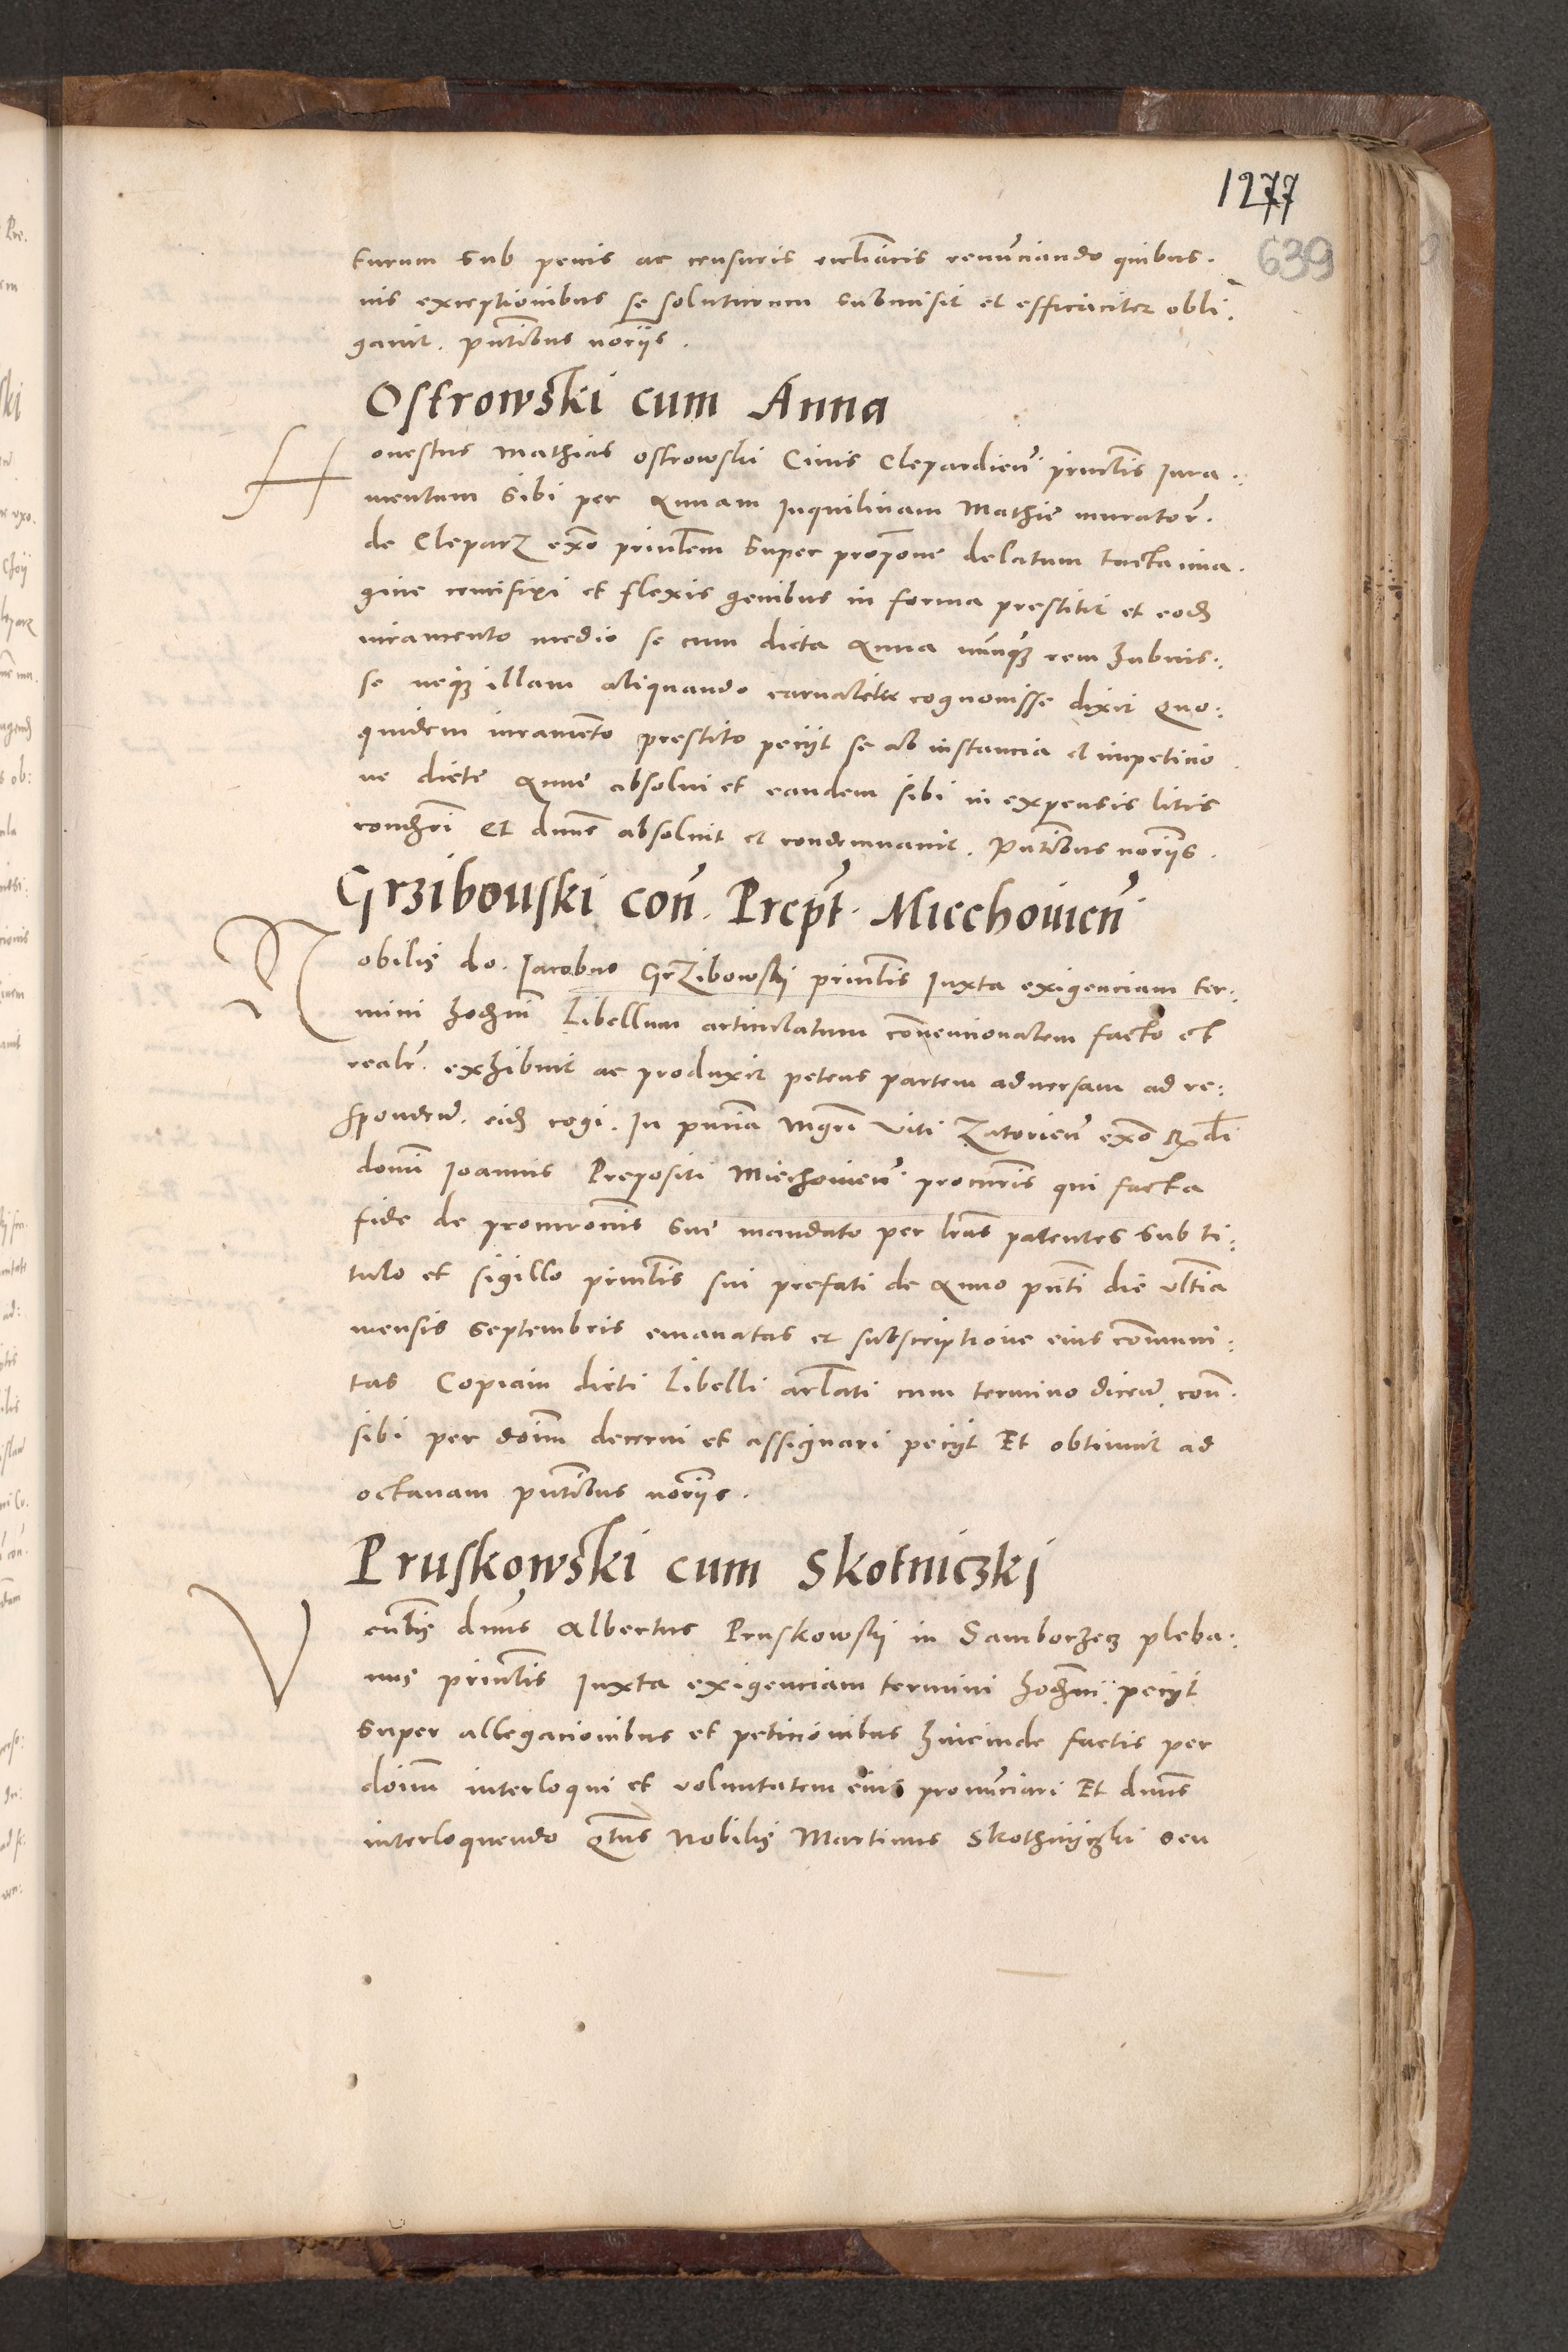 1277
639
turum sub penis ac censuris eccliasticis renunciando quibus.
uis exceptionibus se soluturum submisit et efficaciter obli:
gauit. pntibus noriis.
Ostrowski cum Anna
Honestus Mathias Ostrowski Ciuis Clepardien principalis Iura:
mentum sibi per Annam Inquilinam Mathie murator.
de Cleparz exo principalem super propone delatum tacta ima.
gine crucifixi et flexis genibus in forma prestitit et eod
iuramento medio se cum dicta Anna nunq rem habuis:
se neq illam aliquando carnaliter cognouisse dixit Quo:
quidem iuramento prestito peciit se ab instancia et impeticio
ne dicte Anne absolui et eandem sibi in expensis litis
condemri Et dnus absoluit et condemnauit. Pntibus noriis.
Grzibouski con. Prept. Miechouien
Nobilis do. Iacobus Grzibowski principalis Iuxta exigenciam ter:
mini hodierni Libellum articulatum conuencionalem facto et
realr. exhibuit ac produxit petens partem aduersam ad re:
spondend. eid cogi. In pncia Mgri Viti Zatorien exo Rdi
domi Ioannis Prepositi Miechouien procuris qui facta
fide de procuronis sue mandato per lras patentes sub ti:
tulo et sigillo principalis sui prefati de Anno pnti die vltima
mensis Septembris emanatas et subscriptione eius communi:
tas Copiam dicti Libelli arlati cum termino dicend. con.
sibi per doim decerni et assignari peciit Et obtinuit ad
octauam pntibus noriis.
Pruskowski cum Skotniczkj
Venblis dnus Albertus Pruskowskj in Samborzecz pleba:
nus principalis Iuxta exigenciam termini hodierni peciit
super allegacionibus et peticionibus hincinde factis per
doim interloqui et voluntatem eius pronunciari Et dnus
interloquendo Qtus Nobilis Martinus Skothniczki seu